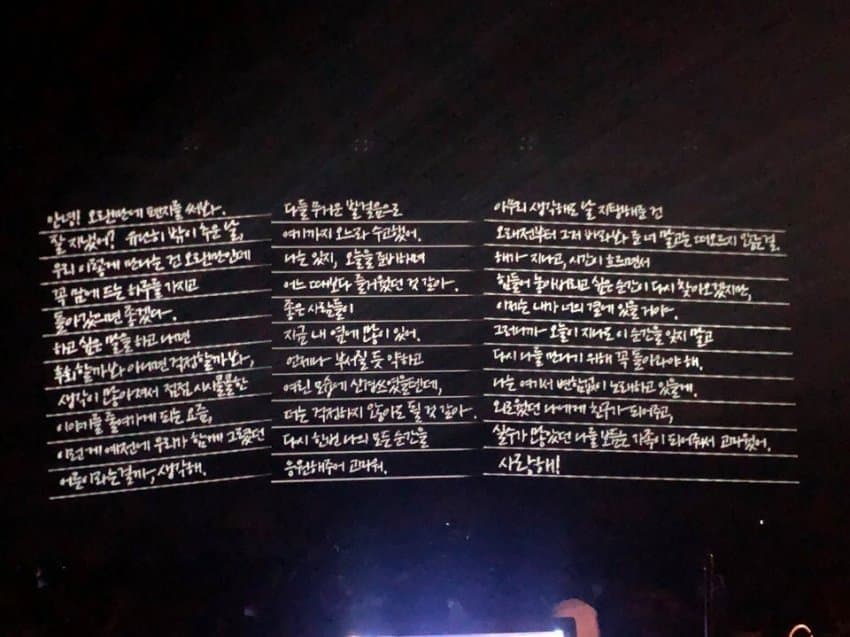 안녕! 오랜만에 편지를 써봐.
잘 지냈어? 유난히 밖이 추운 날,
우리 이렇게 만나는 건 오랜만인데
꼭 맘에 드는 하루를 가지고
돌아갔으면 좋겠다.
하고 싶은 말을 하고 나면
후회할까봐 아니면 걱정할까봐,
생각이 많아져서 점점 시시콜콜한
이야기를 줄여가게 되는 요즘,
이런 게 예전에 우리가 함께 그렸던
어른이라는걸까, 생각해.
다들 무거운 발걸음으로
여기까지 오느라 수고했어.
나는 있지, 오늘을 준비하며
어느 때보다 즐거웠던 것 같아.
좋은 사람들이
지금 내 옆에 많이 있어.
언제나 부서질 듯 약하고
여린 모습에 신경쓰였을텐데,
더는 걱정하지 않아도 될 것 같아.
다시 한번 나의 모든 순간을
응원해주어 고마워.
아무리 생각해도 날 지탱해준 건
오래전부터 그저 바라봐 준 너 말고는 떠오르지 않은걸,
해가 지나고, 시간이 흐르면서
힘들어 놓아버리고 싶은 순간이 다시 찾아오겠지만,
이제는 내가 너의 곁에 있을거야.
그러니까 오늘이 지나도 이 순간을 잊지 말고
다시 나를 만나기 위해 꼭 돌아와야 해.
나는 여기서 변함없이 노래하고 있을게.
외로웠던 나에게 친구가 되어주고,
실수가 많았던 나를 보듬는 가족이 되어줘서 고마웠어.
사랑해!